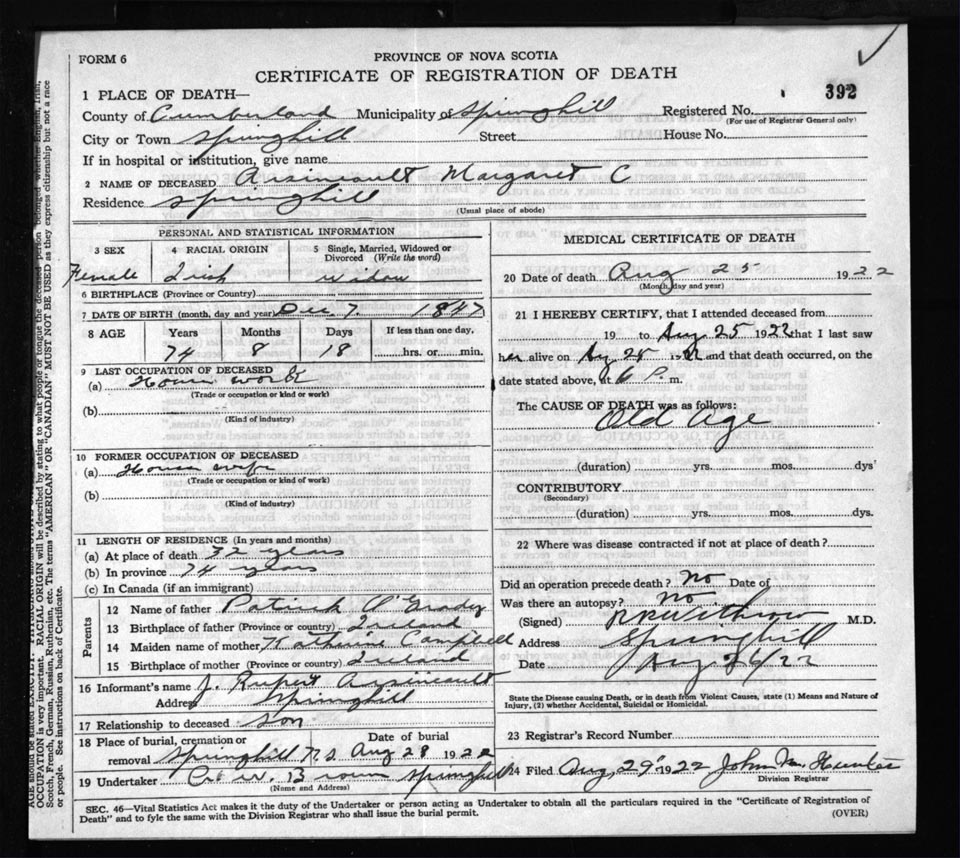 FORM 6
PROVINCE OF NOVA SCOTIA
CERTIFICATE OF REGISTRATION OF DEATH
392
1 PLACE OF DEATH—
County of Cumberland Municipality of Springhill Registered No.
(For use of Registrar General only)
City or Town Springhill Street House No.
If in hospital or institution, give name
2 NAME OF DECEASED Arsineault Margaret C
Residence Springhill
(Usual place of abode)
PERSONAL AND STATISTICAL INFORMATION
3 SEX 4 RACIAL ORIGIN 5 Single, Married, Widowed or Divorced (Write the word)
Female Irish Widow
6 BIRTHPLACE (Province or Country)
7 DATE OF BIRTH (month, day and year) Dec 7. 1847
8 AGE Years Months Days If less than one day,
74 8 18 hrs. or min.
9 LAST OCCUPATION OF DECEASED
(a) House work
(Trade or occupation or kind or work)
(b)
(Kind of industry)
10 FORMER OCCUPATION OF DECEASED
(a) House wife
(Trade or occupation or kind of work)
(b)
(Kind of industry)
11 LENGTH OF RESIDENCE (In years and months)
(a) At place of death 32 years
(b) In province 74 years
(c) In Canada (if an immigrant)
Parents
12 Name of father Patrick O'Grady
13 Birthplace of father (Province or country) Ireland
14 Maiden name of mother Katherine Campbell
15 Birthplace of mother (Province or country) Ireland
16 Informant's name J. Rupert Arsineault
Address Springhill
17 Relationship to deceased son
18 Place of burial, cremation or removal Date of burial
Springhill N.S. Aug 28 1922
19 Undertaker W. Brown Springhill
(Name and Address)
MEDICAL CERTIFICATE OF DEATH
20 Date of death Aug 25 1922
(Month, day and year)
21 I HEREBY CERTIFY, that I attended deceased from
19 to Aug 25 1922 that I last saw
her alive on Aug 25 1922 and that death occurred, on the
date stated above, at 6 P. m.
The CAUSE OF DEATH was as follows:
Old Age
(duration) yrs. mos. dys'
CONTRIBUTORY
(Secondary)
(duration) yrs. mos. dys.
22 Where was disease contracted if not at place of death?
Did an operation precede death? No Date of
Was there an autopsy? No
(Signed) Withrow M.D.
Address Springhill
Date Aug 26/22
State the Disease causing Death, or in death from Violent Causes, state (1) Means and Nature of
Injury, (2) whether Accidental, Suicidal or Homicidal.
23 Registrar's Record Number
24 Filed Aug, 29" 1922 John M. Hunter
Division Registrar
SEC. 46—Vital Statistics Act makes it the duty of the Undertaker or person acting as Undertaker to obtain all the particulars required in the "Certificate of Registration of
Death" and to fyle the same with the Division Registrar who shall issue the burial permit.
(OVER)
OCCUPATION is very important. RACIAL ORIGIN will be described by stating to what people or tongue the deceased person belonged whether English, Irish,
Scotch, French, German, Russian, Ruthenian, etc. The terms "AMERICAN" OR "CANADIAN" MUST NOT BE USED as they express citizenship but not a race
or people. See instructions on back of Certificate.